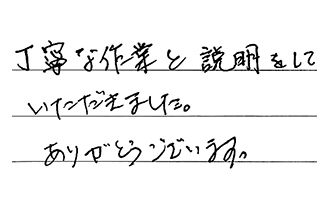 丁寧な作業と説明をして
いただきました。
ありがとうございます。